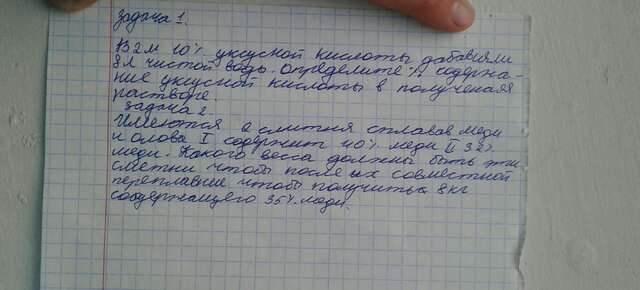 Задача 1.
В 2л 10% уксусной кислоты добавили
8л чистой воды. Определите % содержа-
ние уксусной кислоты в полученая
растворе.
Задача 2.
Имеются 2 слитня сплавав меди
и олова I содержит 40% меди II 32%
меди. Какого весса должны быть эти
слетни чтобы после их совместной
переплавне чтобы получитьа 8кг
сбодержащего 35% меди.